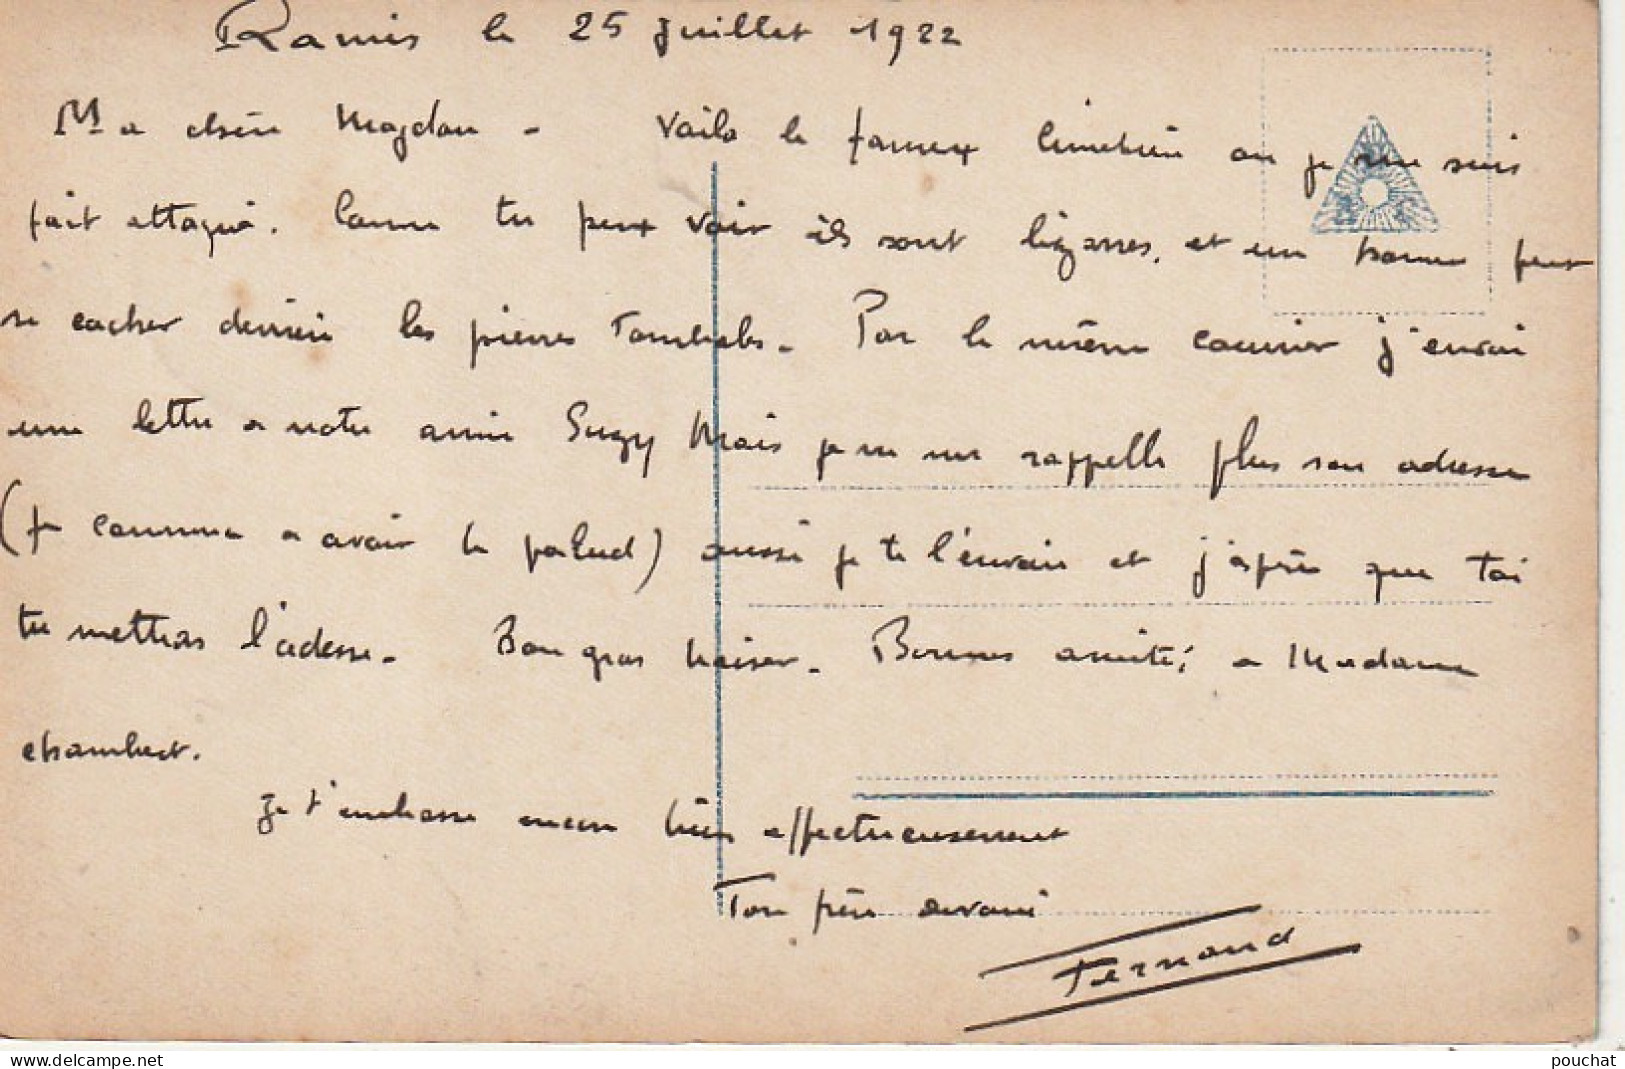 Ramis le 25 Juillet 1922
Ma chère Magdan - Voila le fameux cimetière ou je me suis
fait attaqué. Comme tu peux voir ils sont bizarres, et un homme peut
se cacher derrière les pierres Tombales - Par le même courrier j'envoi
une lettre a notre amie Suzy Mais je ne me rappelle plus son adresse
(je commence a avoir le palud) aussi je te l'envoie et j'espère que toi
tu mettras l'adesse - Bon gros baiser - Bonnes amitiés a Madame
chambert.
Je t'embrasse encore bien affectueusement
Ton frère
Fernand
delcampe.net
pouchat